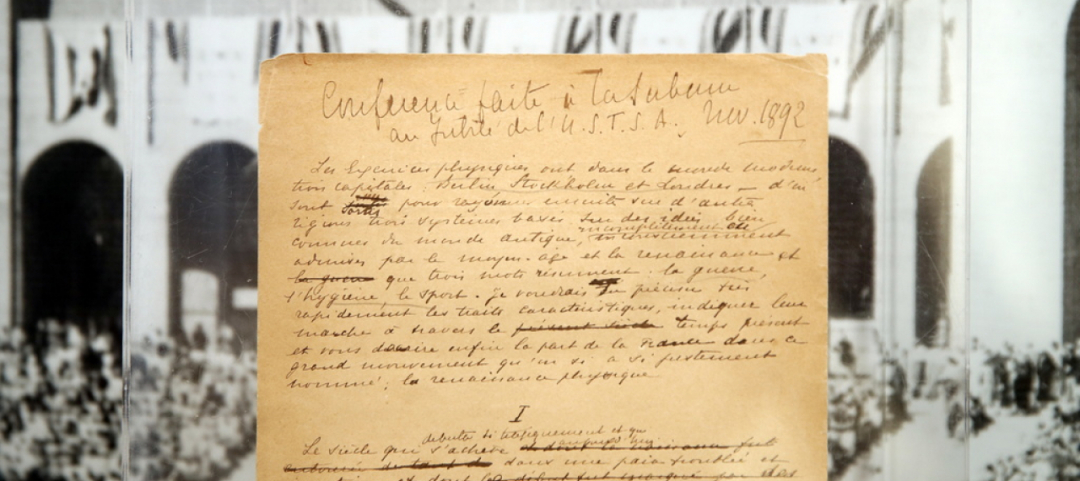 Conférence faite à la Sorbonne
au Jubilé de l'U.S.F.S.A., Nov. 1892
Les Exercices physiques ont dans le monde moderne
trois capitales : Berlin, Stockholm et Londres — d'où
sont sortis pour rayonner ensuite sur d'autres
régions trois systèmes basés sur des idées bien
incomplètement
connues du monde antique, inconsciemment
admises par le moyen-âge et la renaissance et
la guerre que trois mots résument : la guerre,
l'hygiène, le sport. je voudrais en préciser très
rapidement les traits caractéristiques, indiquer leur
marche à travers le présent siècle temps présent
et vous dire enfin la part de la France dans ce
grand mouvement qu'on a si justement
nommé : la renaissance physique
I
débuta si et qui
Le siècle qui s'achève
dans une paix troublée et